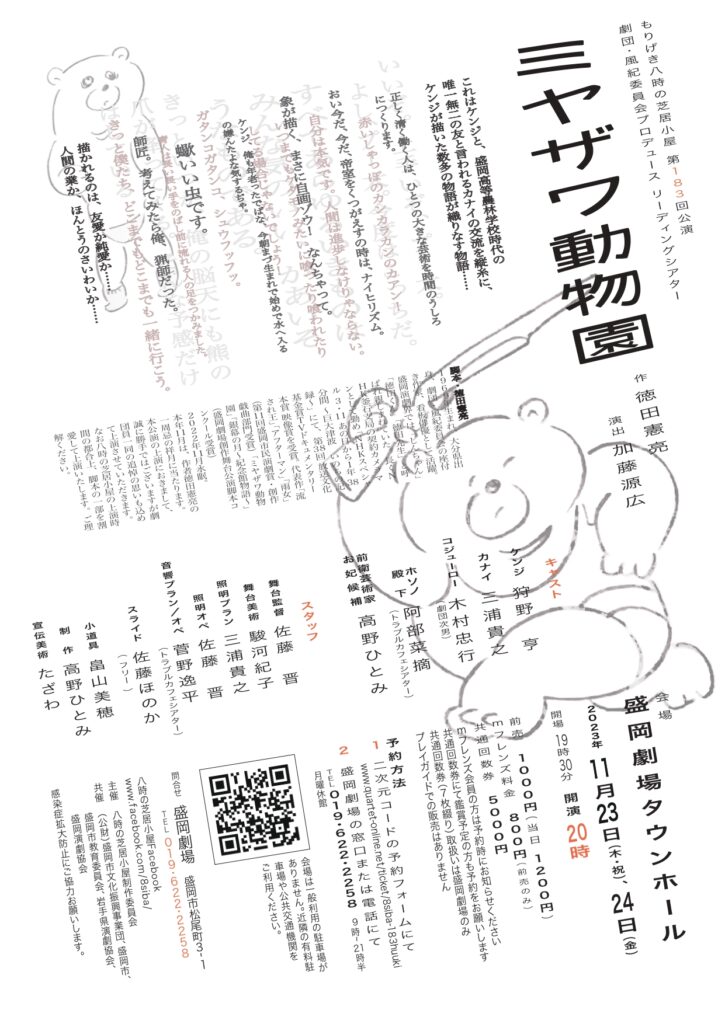 もりげき八時の芝居小屋 第183回公演
劇団・風紀委員会プロデュース リーディングシアター
ミヤザワ動物園
作 徳田憲亮
演出 加藤源広
これはケンジと、盛岡高等農林学校時代の
唯一無二の友と言われるカナイの交流を縦糸に、
ケンジが描いた数多の物語が織りなす物語……
正しく清く働く人は、ひとつの大きな芸術を時間のうしろ
につくります。
よし赤いしゃっぽのカンカラカンのカアン！
おい今だ、今だ、帝室をくつがえすの時は、ナイヒリズム。
自分は本気です。人間は進歩しなけりゃならない。
象が描く、まさに自画ゾウ！ なんちゃって。
ケンジ、俺も年老ったでばな、今朝まづ生まれで始めで水へ入る
の嫌んたよな気するぢゃ。
ガタンコガタンコ、シュウフッフッ。
蠍いい虫です。
師匠。考えてみたら俺、猟師だった。
きっと僕たち、どこまでもどこまでも一緒に行こう。
描かれるのは、友愛か純愛か……
人間の業か、ほんとうのさいわいか……
脚本・徳田憲亮
2022年11月永眠。
本年11月は、作者徳田憲亮の
一周忌の祥月に当たります。
本公演の上演におきまして、
誠に勝手ではございますが劇
団員一同の追悼の思いも込め
て上演させていただきます。
なお八時の芝居小屋の上演時
間の都合上、脚本の一部を割
愛して上演いたします。ご理
解ください。
キャスト
ケンジ 狩野 亨
カナイ 三浦貴之
コジューロー 木村忠行
（劇団次男）
ホソノ
殿下 阿部菜摘
（トラブルカフェシアター）
前衛芸術家
お妃候補 高野ひとみ
スタッフ
舞台監督 佐藤 晋
舞台美術 駿河紀子
照明プラン 三浦貴之
照明オペ 佐藤 晋
音響プラン／オペ 菅野逸平
（トラブルカフェシアター）
スライド 佐藤ほのか
（フリー）
小道具 畠山美穂
制作 高野ひとみ
宣伝美術 たざわ
会場 盛岡劇場タウンホール
2023年11月23日（木・祝）、24日（金）
開場 19時30分 開演 20時
前売 1000円（当日 1200円）
mフレンズ料金 800円（前売のみ）
共通回数券 5000円
mフレンズ会員の方は予約時にお知らせください
共通回数券にて鑑賞予定の方も予約をお願いします
共通回数券（7枚綴り）取扱いは盛岡劇場のみ
プレイガイドでの販売はありません
予約方法
1 二次元コードの予約フォームにて
www.quartet-online.net/ticket/8siba-183huuki
2 盛岡劇場の窓口または電話にて
TEL 019-622-2258 9時-21時半
月曜休館
会場は一般利用の駐車場が
ありません。近隣の有料駐
車場や公共交通機関を
ご利用ください。
問合せ 盛岡劇場 盛岡市松尾町3-1
TEL 019-622-2258
八時の芝居小屋Facebook
www.facebook.com/8siba/
主催 八時の芝居小屋制作委員会
共催 （公財）盛岡市文化振興事業団、盛岡市、
盛岡市教育委員会、岩手県演劇協会、
盛岡演劇協会
感染症拡大防止にご協力お願いします。